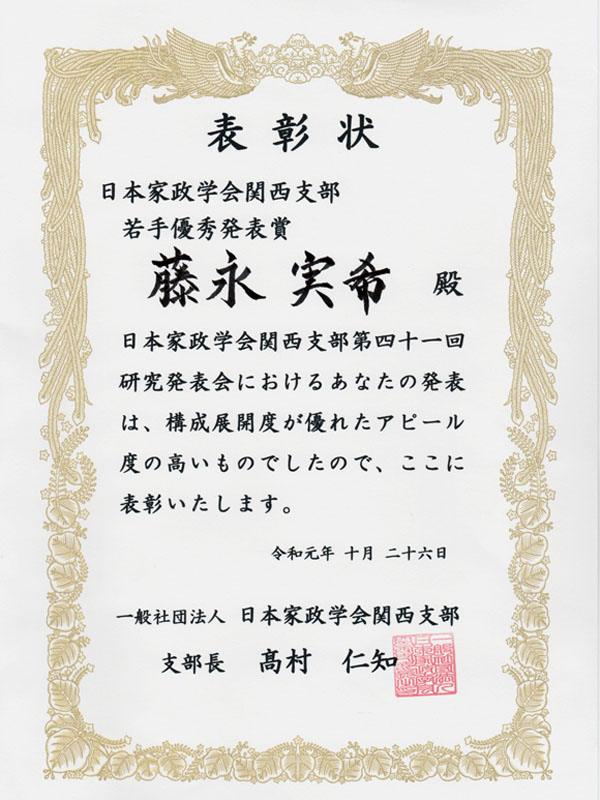 表彰状
日本家政学会関西支部
若手優秀発表賞
藤永 実希 殿
日本家政学会関西支部第四十一回
研究発表会におけるあなたの発表
は、構成展開度が優れたアピール
度の高いものでしたので、ここに
表彰いたします。
令和元年 十月 二十六日
一般社団法人 日本家政学会関西支部
支部長 髙村 仁知